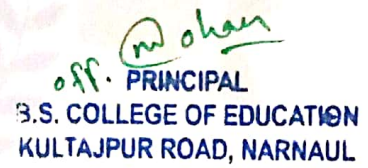 off. Mohan
PRINCIPAL
B.S. COLLEGE OF EDUCATION
KULTAJPUR ROAD, NARNAUL